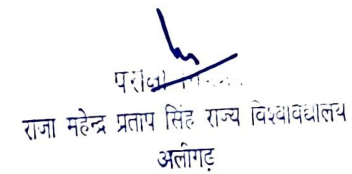 राजा महेन्द्र प्रताप सिंह राज्य विश्वविद्यालय
अलीगढ़